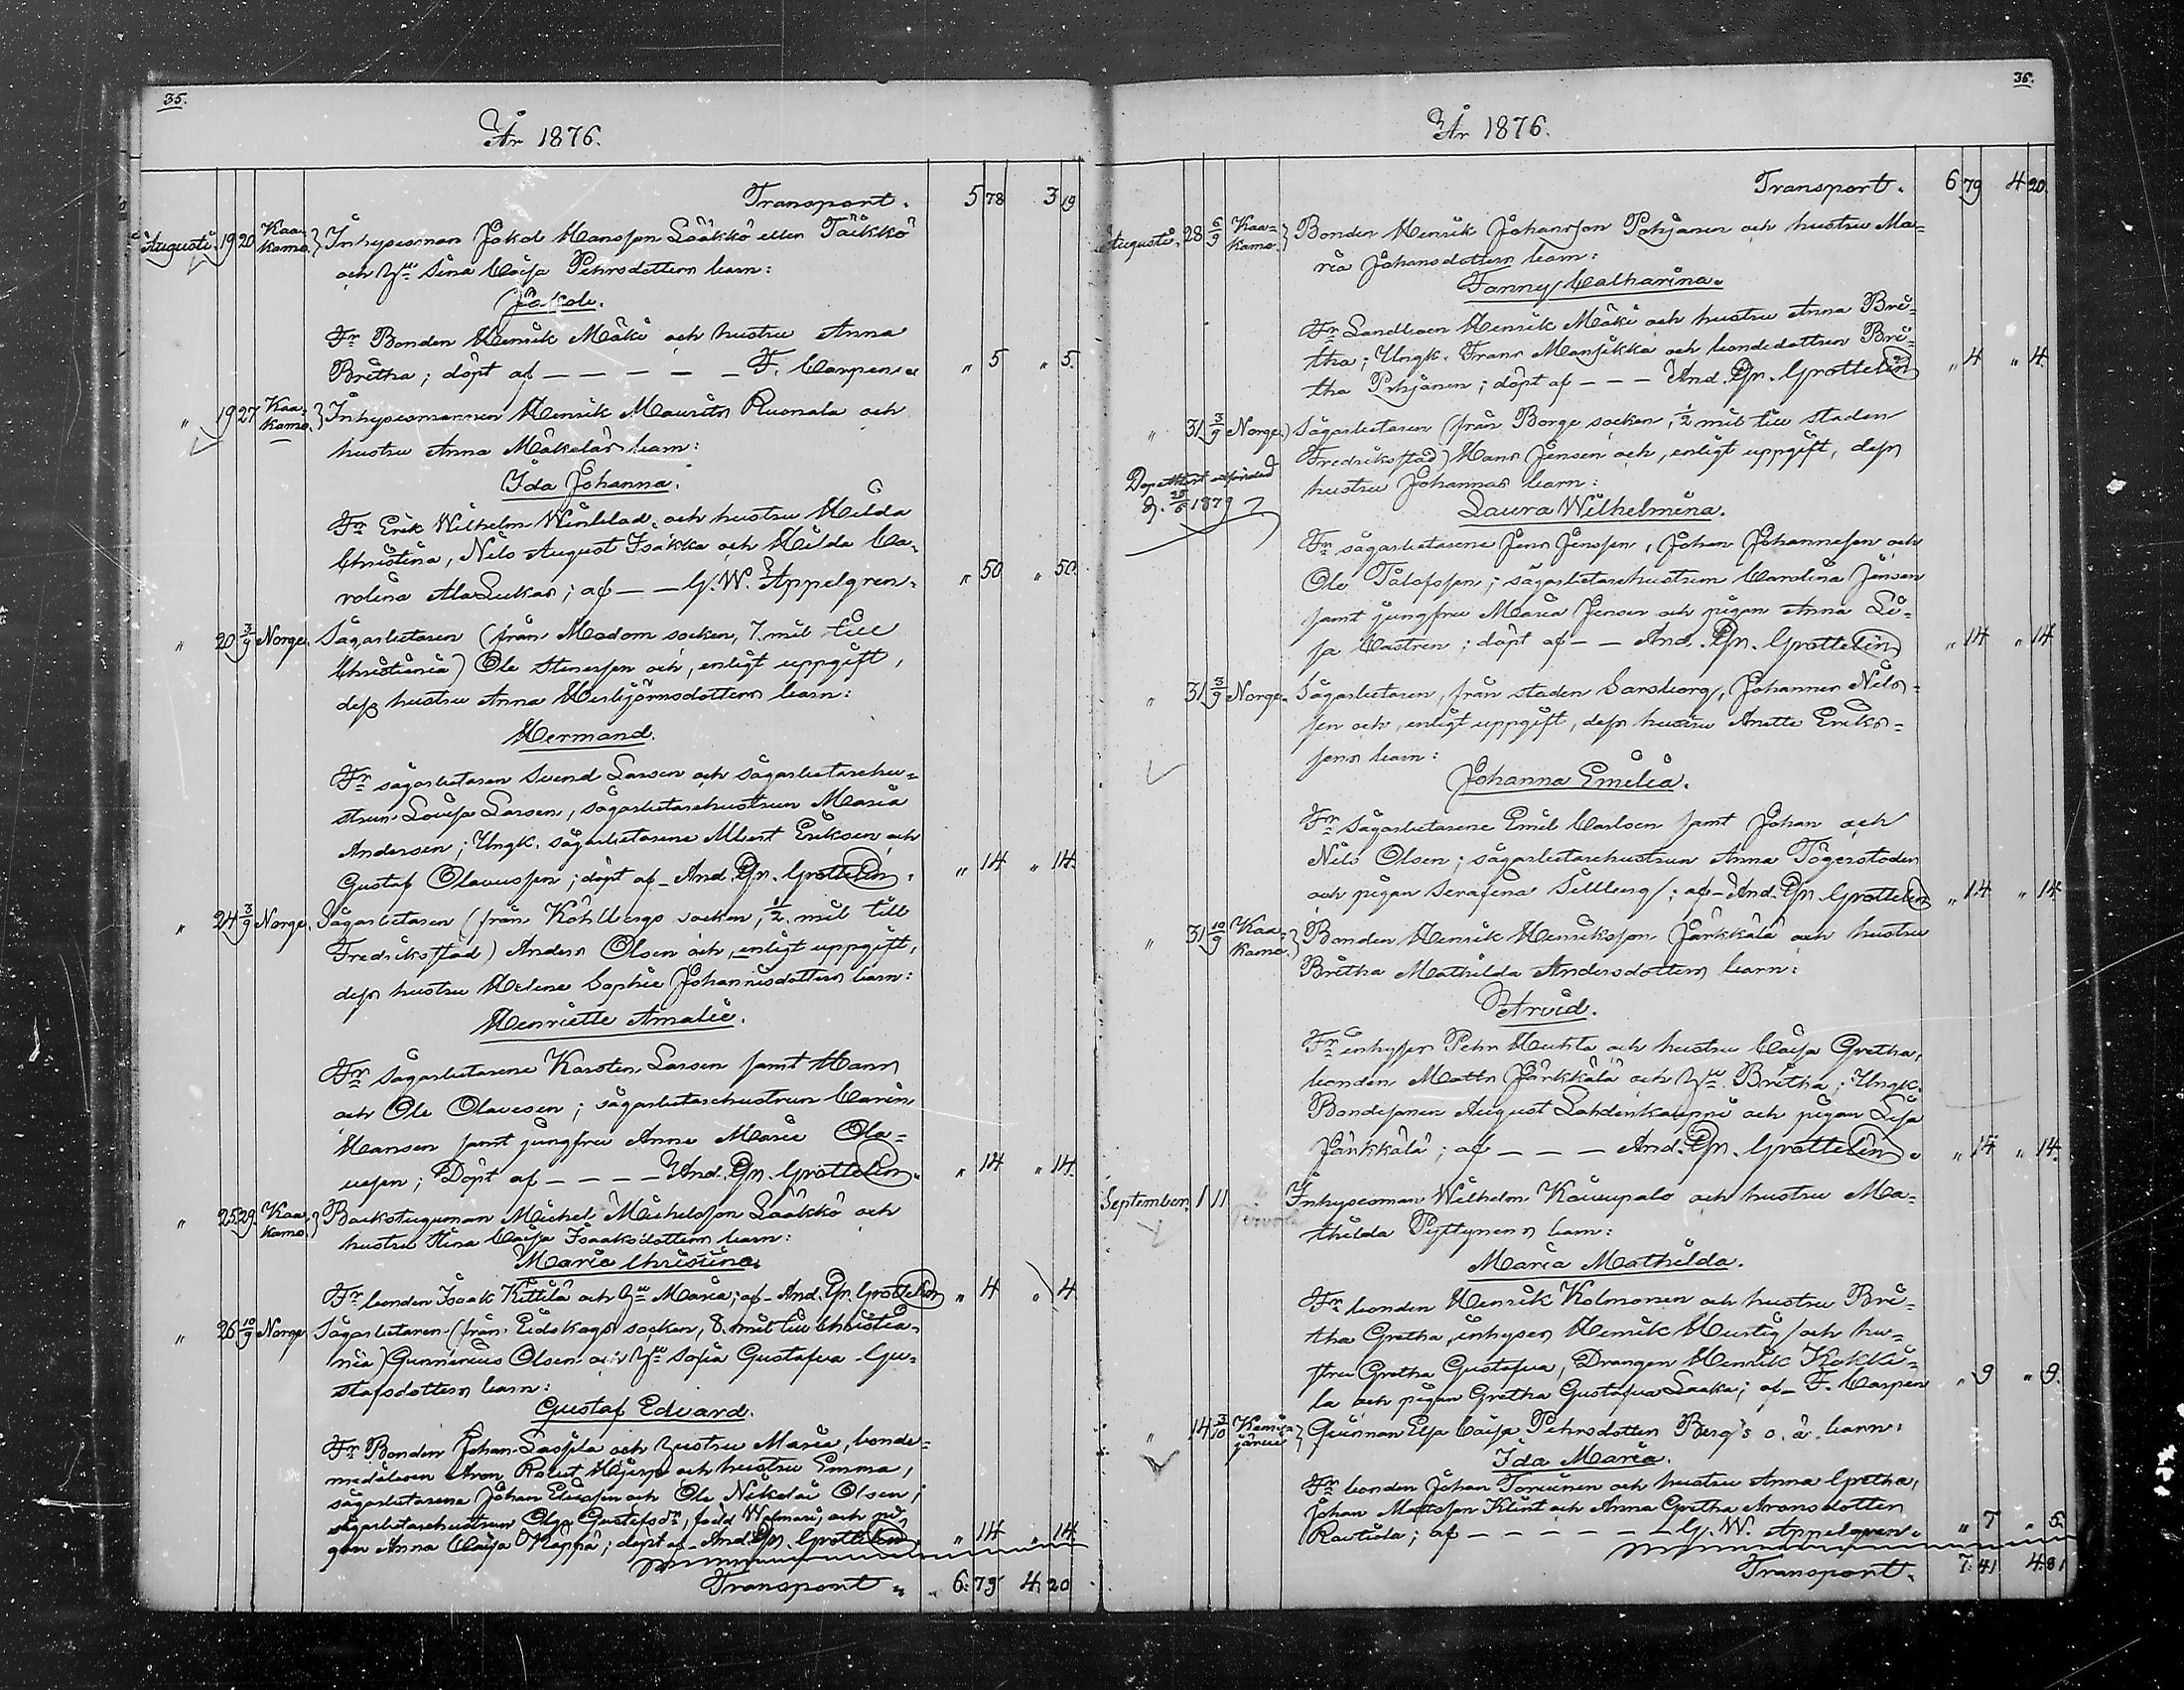 35.
År 1876.
Transport. 5 78 3 19
Augusti. 19 20 Kaa-kamo. Inhysesman Jakob Hansson Lääkkö eller Täikkö
och Hu Stina Caisa Pehrsdotters barn:
Jakob.
Fr Bonden Henrik Mäki och hustru Anna
Britha; döpt af — — — — — F. Carpen. " 5 " 5.
" 19 27 Kaa-kamo. Inhysesmannen Henrik Mauritz Ruonala och
hustru Anna Mäkeläs barn:
Ida Johanna.
Fr Erik Wilhelm Winblad och hustru Hilda
Christina, Nils August Isakka och Hilda Ca-
rolina AlaLukas; af — — G. W. Appelgren. " 50 " 50.
" 20 3/9 Norge. Sågarbetaren (från Modom socken, 7. mil till
Christiania) Ole Stenersen och, enligt uppgift,
dess hustru Anna Herbjörnsdotters barn:
Hermand.
Fr sågarbetaren Svend Larsen och sågarbetarehu-
strun Lovisa Larsen, sågarbetarehustrun Maria
Andersen; Ungk. sågarbetarene Albert Eriksen och
Gustaf Olaussen; döpt af — And. Gr. Grottelin. " 14 " 14.
" 24 3/9 Norge. Sågarbetaren (från Kohlbergs socken, 1/2. mil till
Fredriksstad) Anders Olsen och, enligt uppgift,
dess hustru Helene Sophie Johannisdotters barn:
Henriette Amalie.
Fr Sågarbetarene Karsten Larsen samt Hans
och Ole Olavesen; sågarbetarehustrun Carin
Hansen samt jungfru Anne Marie Ola-
vesen; Döpt af — — — — And. Gr. Grottelin. " 14 " 14.
" 25 29. Kaa-kamo. Backstuguman Michel Michelsson Lääkkö och
hustru Stina Caisa Isaaksdotters barn:
Maria Christina.
Fr bonden Isaak Kittilä och Hu Maria; af — And. Gr. Grottelin " 4 " 4
" 26 10/9 Norge. Sågarbetaren (från Eidskogs socken, 8. mil till Christia-
nia) Gunnerius Olsen och Hu Sofia Gustafva Gu-
stafsdotters barn:
Gustaf Edvard.
Fr Bonden Johan Lassila och hustru Maria, bonde-
måg Aron Robert Hjerp och hustru Emma,
sågarbetarene Johan Eliassen och Ole Nikolai Olsen;
sågarbetarehustrun Olga Gustafsdr, född Wolmari, och pi-
gan Anna Caisa Käppä; döpt af — And. Gr. Grottelin " 14 " 14
Transport. 6: 79 4: 20
36.
År 1876.
Transport. 6 79 4 20.
Augusti. 28 6/9 Kaa-kamo. Bonden Henrik Johansson Pohjanen och hustru Ma-
ria Johansdotters barn:
Fanny Catharina.
Fr Landboen Henrik Mäki och hustru Anna Bri-
tha; Ungk. Frans Mansikka och bondedottren Bri-
tha Pohjanen; döpt af — — — And. Gr. Grottelin " 4 " 4.
" 31 3/9 Norge. Sågarbetaren (från Borge socken, 1/2 mil till staden
Fredriksstad) Hans Jensen och, enligt uppgift, dess
hustru Johannas barn:
Dopattest
d. 25/5 1879
Laura Wilhelmina.
Fr sågarbetarene Jens Jenssen, Johan Johannesen och
Ole Tolofssen; sågarbetarehustrun Carolina Jensen
samt jungfru Maria Jensen och pigan Anna Li-
sa Castren; döpt af — — And. Gr. Grottelin " 14 " 14
" 31 3/9 Norge. Sågarbetaren, från staden Sarsborg, Johannes Nils-
sen och, enligt uppgift, dess hustru Anette Eriks-
sens barn:
Johanna Emilia.
Fr Sågarbetarene Emil Carlsen samt Johan och
Nils Olsen; sågarbetarehustrun Anna Tögerstoden
och pigan Serafina Sillberg; af — And. Gr. Grottelin " 14 " 14.
" 31 10/9 Kaa-kamo. Bonden Henrik Henriksson Järkkälä och hustru
Britha Mathilda Andersdotters barn:
Arvid.
Fr inhyses Pehr Huhta och hustru Caisa Gretha,
bonden Matts Järkkälä och Hu Britha; Ungk.
Bondesonen August Lahdenkauppi och pigan Lisa
Järkkälä; af — — — And. Gr. Grottelin. " 14 " 14.
September. 1 11 Tervola Inhysesman Wilhelm Kauupalo och hustru Ma-
thilda Pyttynens barn:
Maria Mathilda.
Fr bonden Henrik Kolmonen och hustru Bri-
tha Gretha, inhyses Henrik Hurtig och hu-
stru Gretha Gustafva, Drängen Henrik Kokki-
la och pigan Gretha Gustafva Laaka; af — F. Carpen " 9 " 9.
" 14 3/10 Kemi-järvi Qvinnan Elsa Caisa Pehrsdotter Berg's o. ä. barn:
Ida Maria.
Fr bonden Johan Torvinen och hustru Anna Gretha,
Johan Mattsson Klint och Anna Gretha Aronsdotter
Rautiola; af — — — — — G. W. Appelgren. " 7 " 6.
Transport. 7: 41 4: 81